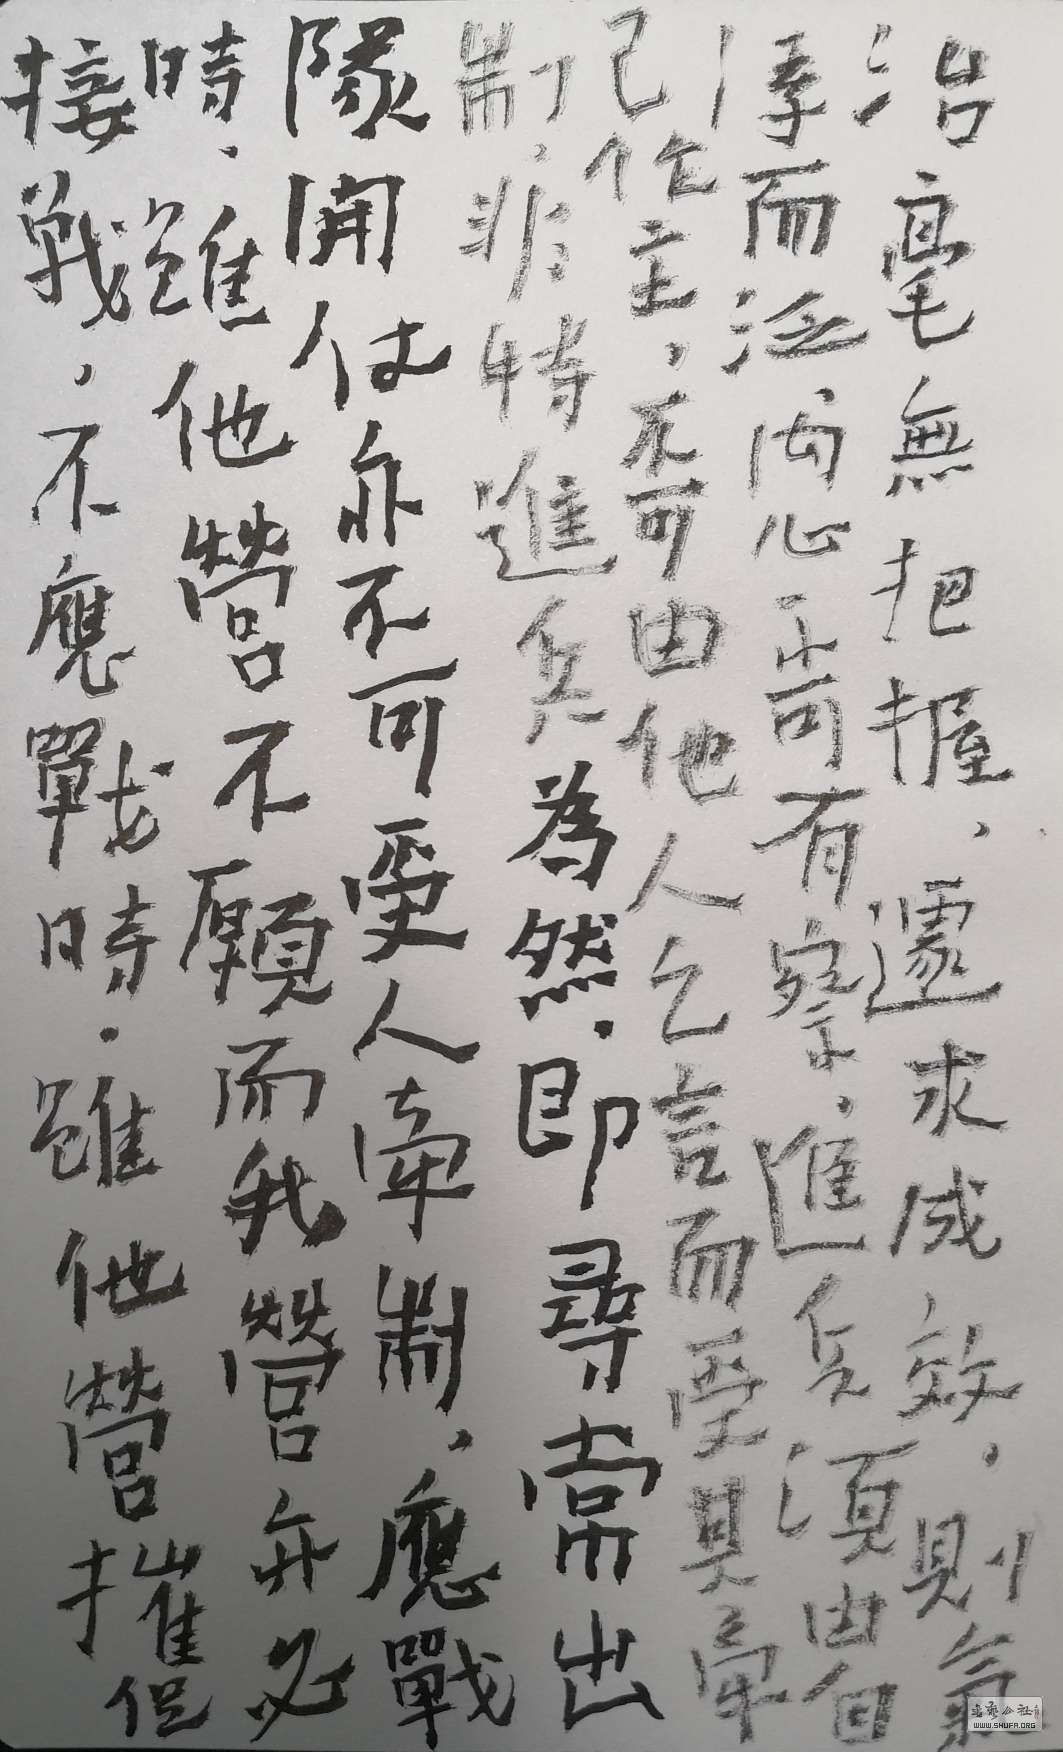 治毫無把握，遽求成效，則氣
浮而泛内心不可有察，進兵須由自
己作主，不可由他人之言而受其牽
制，非特進兵為然，即尋常出
隊開仗亦不可受人牽制，應戰
時，雖他營不願而我營亦必
接戰，不應戰時，雖他營摧但
WWW.SHUFA.ORG